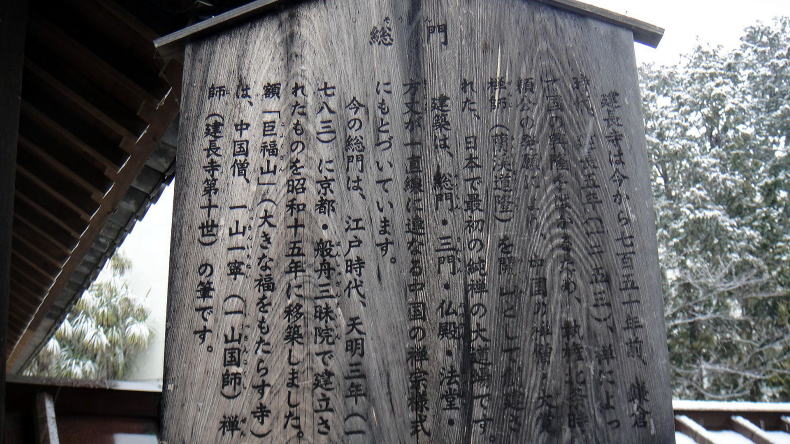 総門
建長寺は今から七百五十年前、鎌倉
時代、建長五年（一二五三）、禅によっ
て国の興隆を
頼公の発願により、中国の禅僧・大覚
禅師（蘭渓道隆）を開山として創建さ
れた、日本で最初の純禅の大道場です。
建築は、総門・三門・仏殿・法堂・
方丈が一直線に連なる中国の禅宗様式
にもとづいています。
今の総門は、江戸時代、天明三年（一
七八三）に京都・般舟三昧院で建立さ
れたものを昭和十五年に移築しました。
額「巨福山」（大きな福をもたらす寺）
は、中国僧、一山一寧（一山国師）禅
師（建長寺第十世）の筆です。